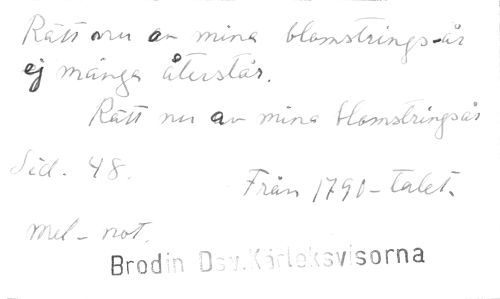 Rätt nu av mina blomstrings-år
ej många återstår.
Rätt nu av mina blomstringsår
Sid. 48.
Från 1790-talet.
mel-not.
Brodin Osv. Kärleksvisorna